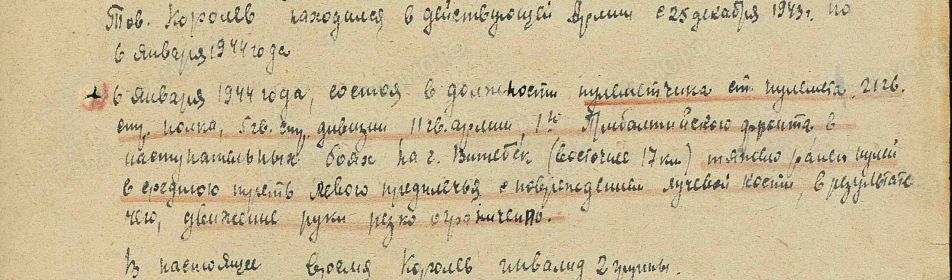 Тов. Королев находился в действующей Армии с 25 декабря 1943 г. по
6 января 1944 года
6 января 1944 года, состоя в должности пулеметчика ст. пулемета 21 гв.
стр. полка, 5 гв. стр. дивизии, 11 гв. армии, 1го Прибалтийского фронта в
наступательных боях на г. Витебск (восточнее 17 км) тяжело ранен пулей
в среднюю треть левого предплечья с повреждением лучевой кости, в результате
чего, движение руки резко ограничено.
В настоящее время Королев инвалид 2 группы.